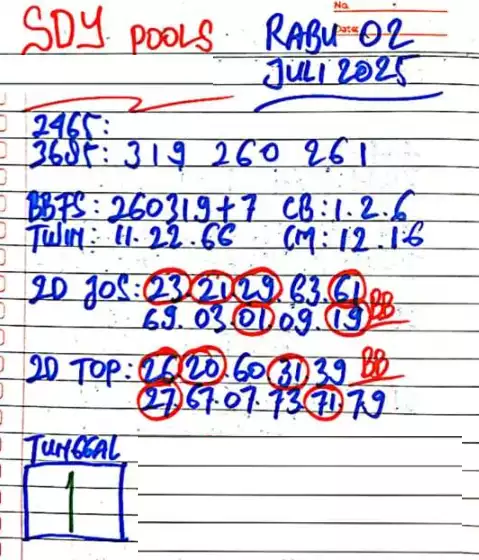 No.
Date:
SDY POOLS RABU 02
JULI 2025
2465:
3685: 319 260 261
BBFS: 260319+7 CB: 1.2.6
TWIN: 11.22.66 CM: 12.16
2D JOS: 23.21.29.63.61
69.03.01.09.19 BB
2D TOP: 26.20.60.31.39 BB
27.67.07.73.71.79
TUNGGAL
1